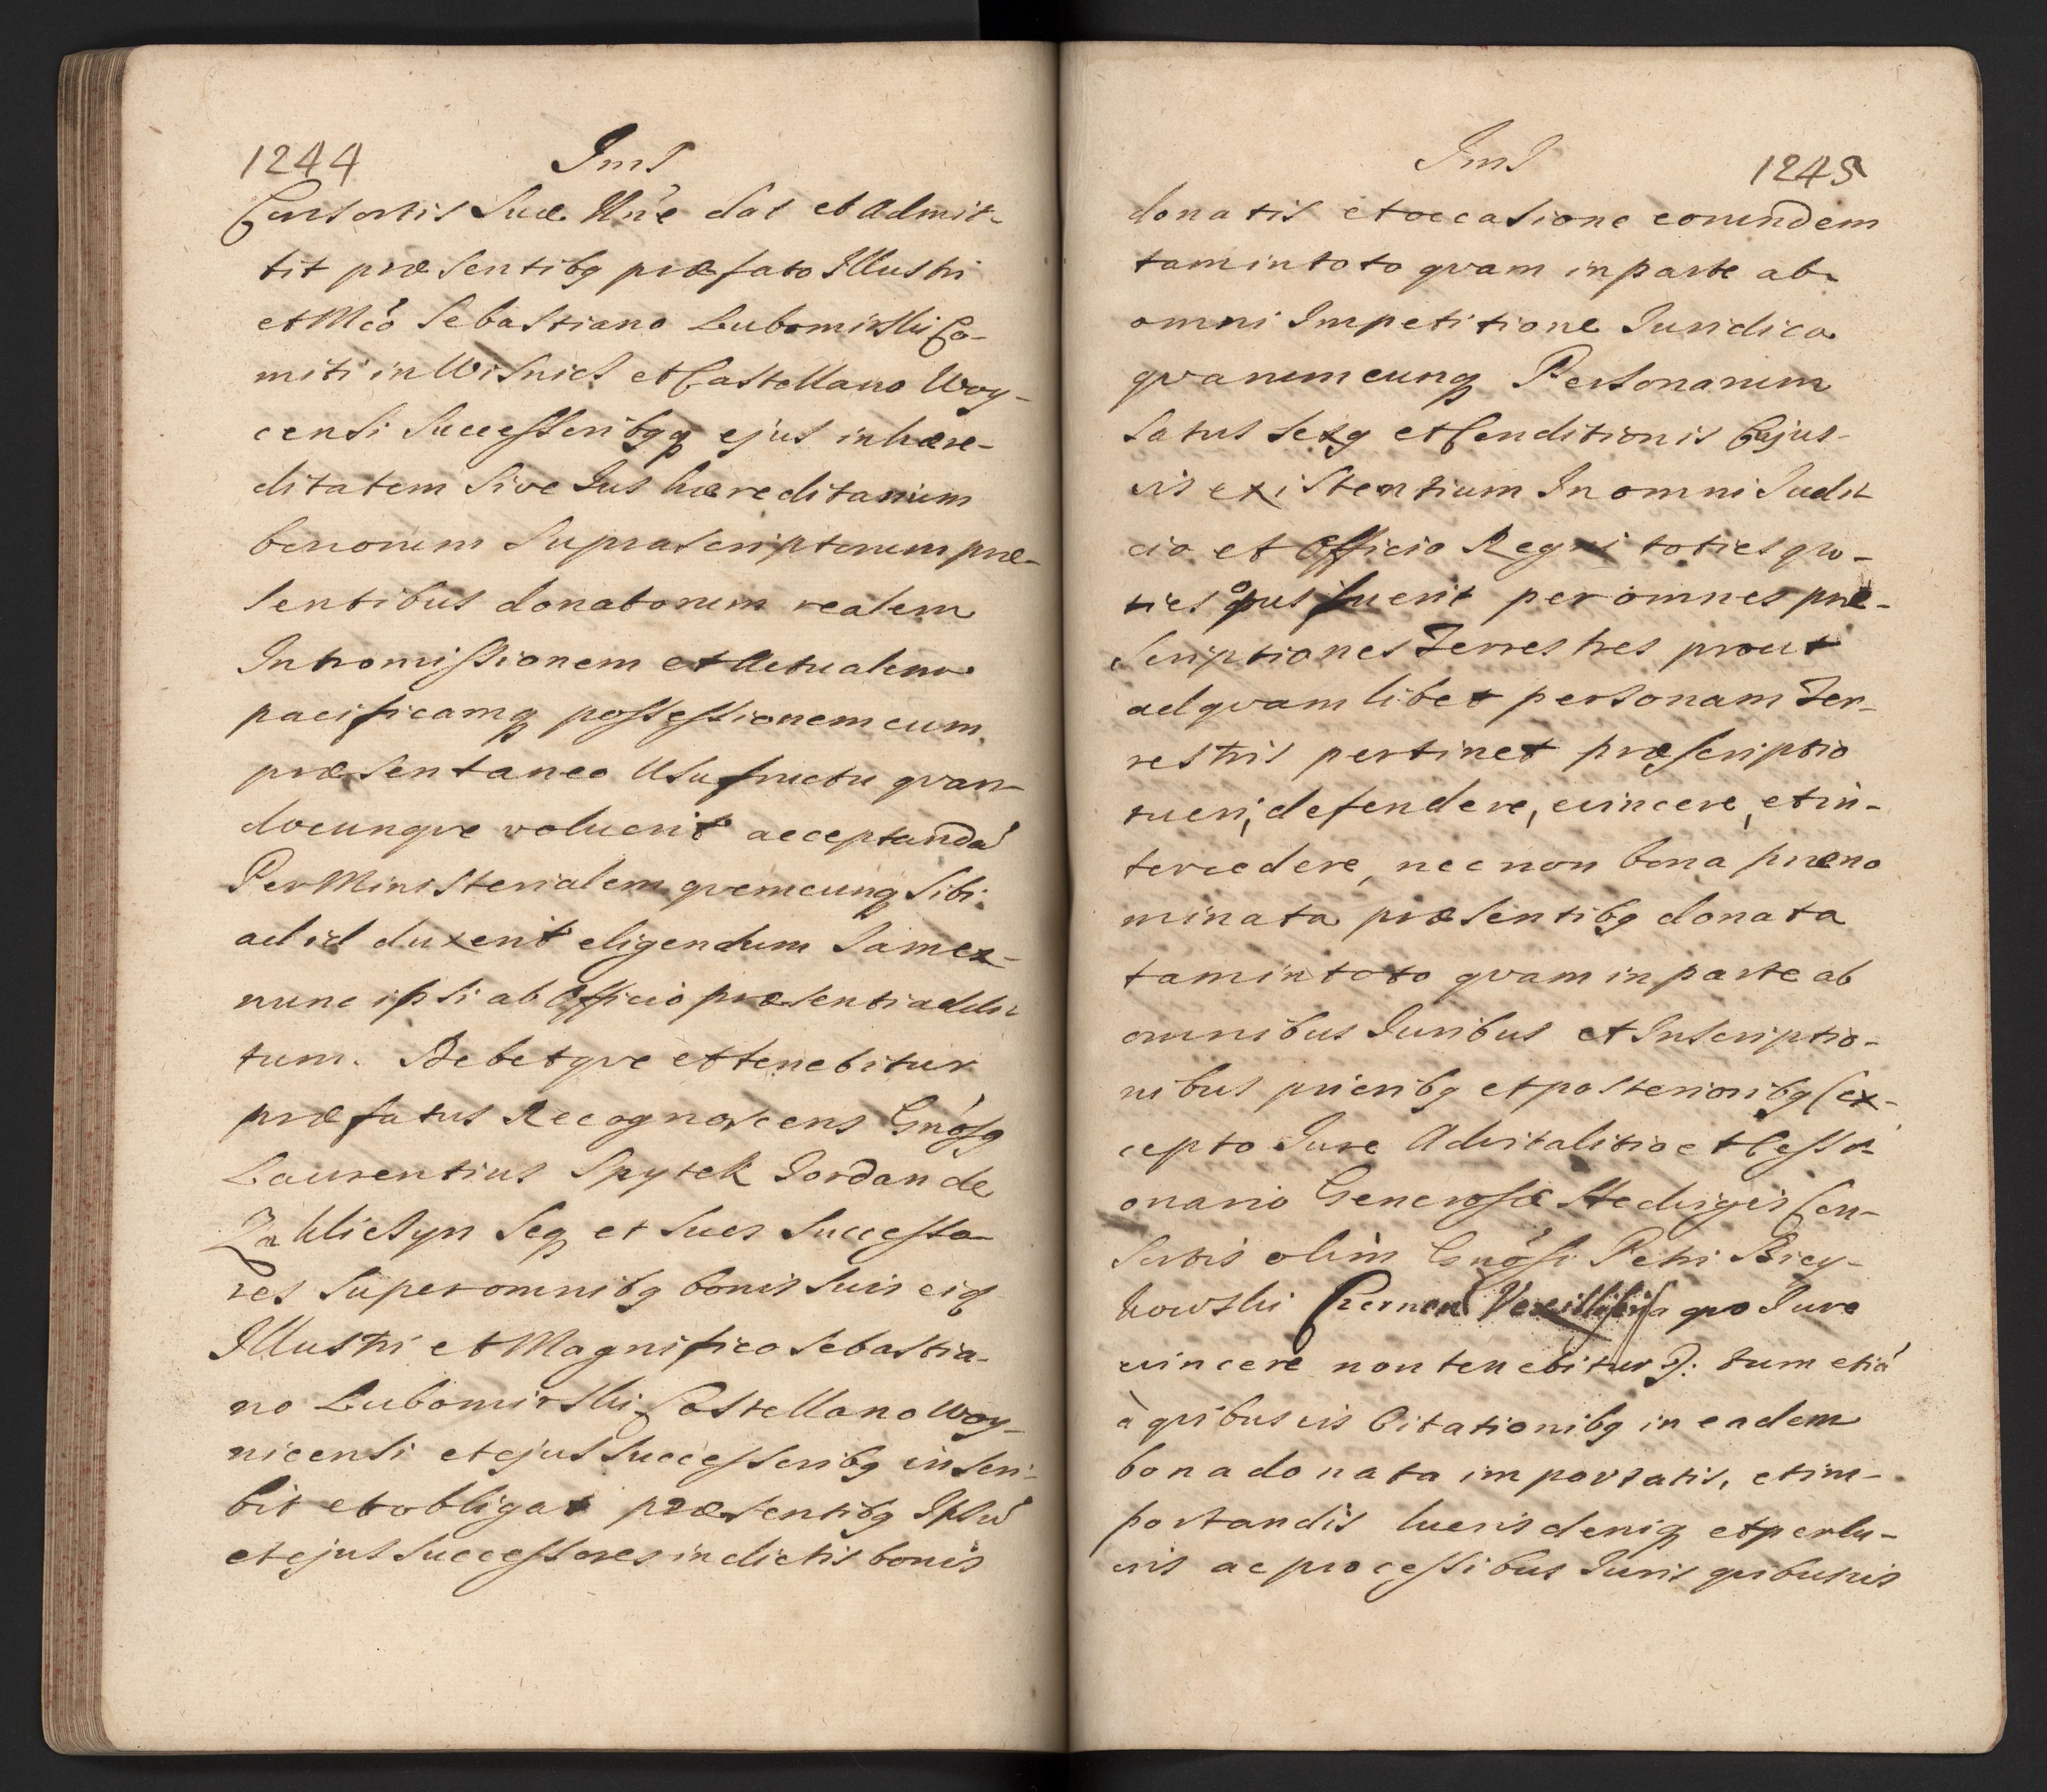 1244
JmJ
Consortis Suæ. Une dat et Admit-
tit præsentibq præfato Illustri
et Mco Sebastiano Lubomirski Co-
miti in Wisnicz et Castellano Woy-
censi Successoribqq ejus in hære-
ditatem Sive Jus hæreditarium
bonorum Suprascriptorum præ-
sentibus donatorum realem
Intromissionem et Actualem
pacificamq possessionem cum
præsentaneo Usufructu qvan-
docunqve voluerit acceptandã
Per Ministerialem qvemcunq Sibi
ad id duxerit eligendum Jam ex-
nunc ipsi ab Officio præsenti addi-
tum. Debetqve et tenebitur
præfatus Recognoscens Gnosq
Laurentius Spytek Jordan de
Zakliczyn Seq et Suos Successo-
res Super omnibq bonis Suis eiq
Illustri et Magnifico Sebastia-
no Lubomirski Castellano Woy-
nicensi et ejus Successoribq inscri-
bit et obligat præsentibq Ipsũ
et ejus Successores in dictis bonis
JmJ
1245
donatis et occasione eorundem
tam in toto qvam in parte ab
omni Impetitione Juridica
qvarumcunq Personarum
Satus Sexq et Conditionis Cujus-
vis existentium In omni Judi-
cio et Officio Regni toties quo-
ties opus fuerit per omnes præ-
scriptiones Terrestres prout
ad qvamlibet personam Ter-
restris pertinet præscriptio
tueri, defendere, evincere, et in-
tercedere, nec non bona præno
minata præsentibq donata
tam in toto qvam in parte ab
omnibus Juribus et Inscriptio-
nibus prioribq et posterioribq (ex-
cepto Jure Advitalitio et Cessi-
onario Generosæ Hedvigis Con-
sortis olim Gnosi Petri Biey-
kowski a quo Jure
evincere non tenebitur): tum etiã
à qvibusvis Citationibq in eadem
bona donata importatis, et im-
portandis lucris deniq et perlu-
cris ac processibus Juris qvibusvis